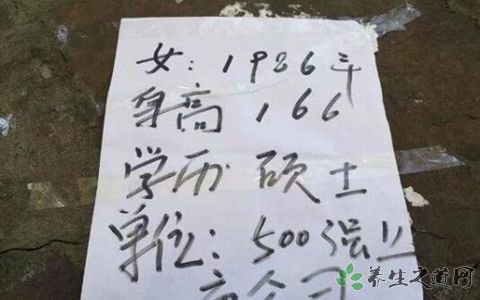 女：1986年
身高166
学历 硕士
单位：500强业
公司
养生之道网